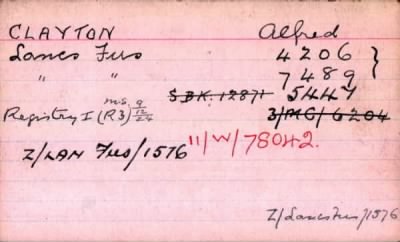 CLAYTON Alfred
Lancs Fus 4206 }
" " 7489
S.BK. 12871 5447
Registry I (R3) m.s. 9/12/24 3/MG/6204
Z/LAN Fus/1576 11/W/78042.
Z/Lancs Fus/1576